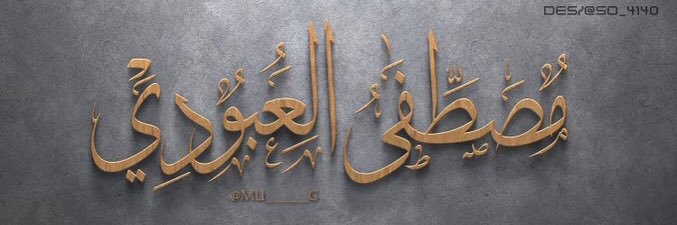 DES/@SO_4140
مُصَطَّفَى العُبُودِي
@MU_____G